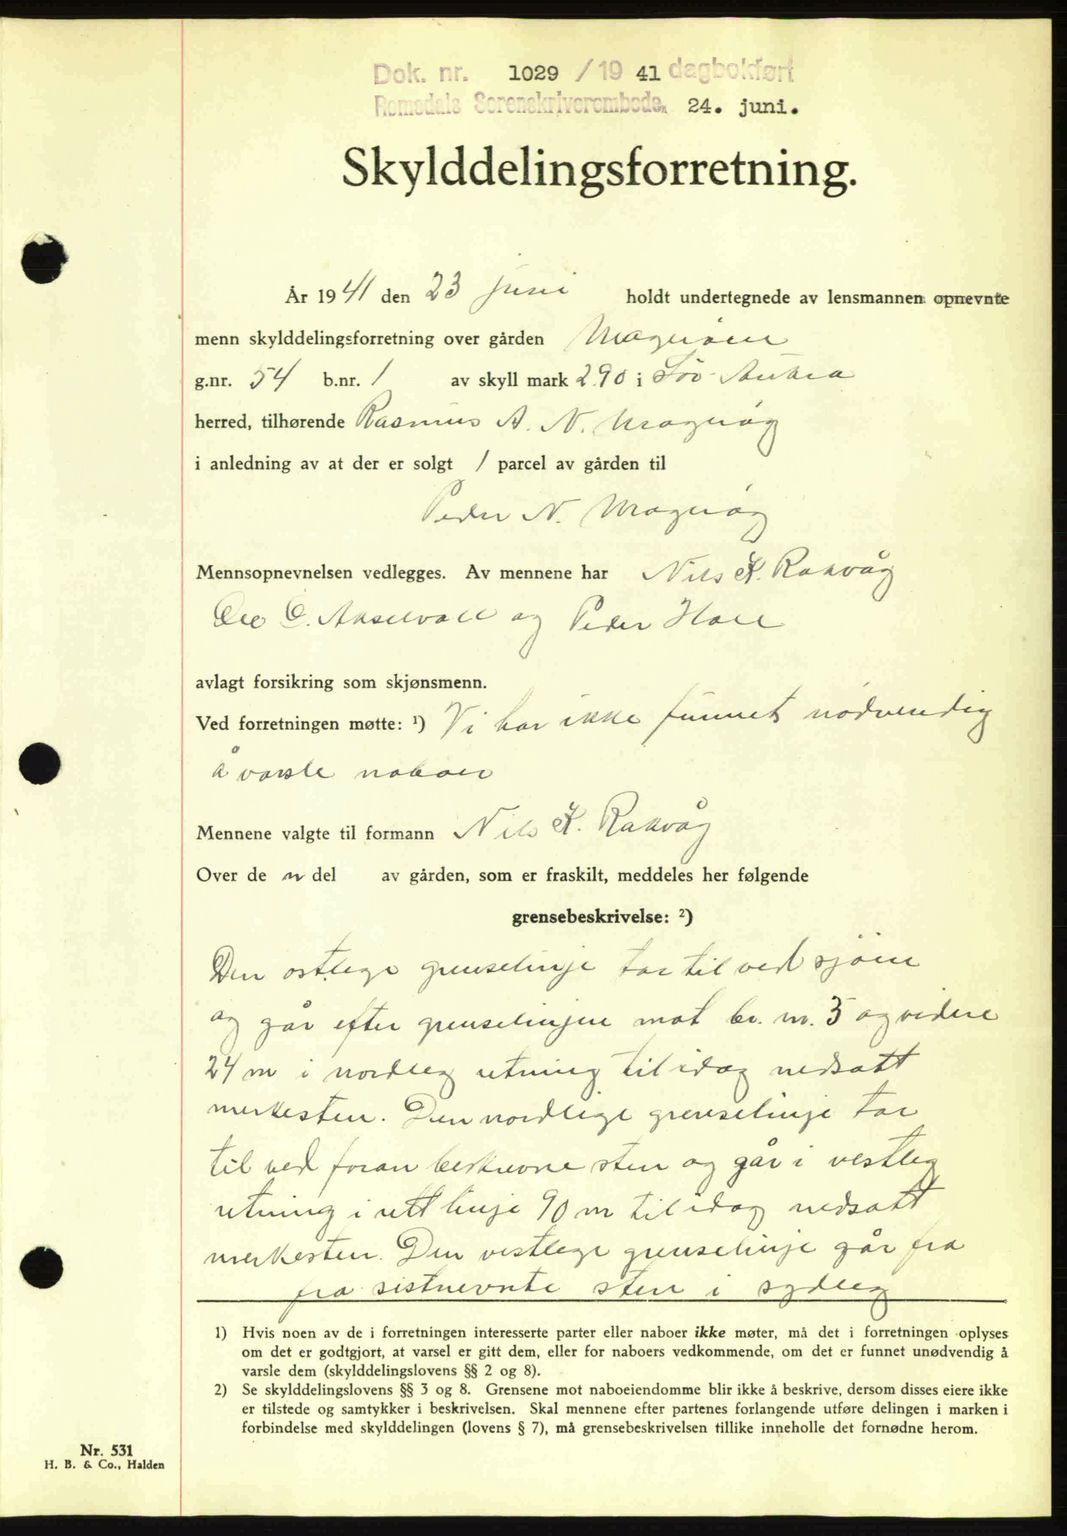 Dok. nr. 1029 / 19 41 dagbokført
Romsdals Sorenskriverembede, 24. juni.
Skylddelingsforretning.
År 1941 den 23 juni holdt undertegnede av lensmannen opnevnte
menn skylddelingsforretning over gården
g.nr. 54 b.nr. 1 av skyll mark 2.90 i Sör Aukra
herred, tilhørende Rasmus A. N. Magerög
i anledning av at der er solgt 1 parcel av gården til
Peder N. Magerög
Mennsopnevnelsen vedlegges. Av mennene har Nils K. Rakvåg
Ole O. Akselvoll og Peder Holl
avlagt forsikring som skjønsmenn.
Ved forretningen møtte: ¹) Vi har ikke funnet nödvendig
å varsle naboer
Mennene valgte til formann Nils K. Rakvåg
Over de n del av gården, som er fraskilt, meddeles her følgende
grensebeskrivelse: ²)
Den ostlege grenselinje tar til ved sjöen
og går efter grenselinjen mot br. nr. 3 og videre
24 m i nordleg retning til idag nedsatt
merkesten. Den nordlige grenselinje tar
til ved foran beskrevne sten og går i vestleg
retning i rett linje 90 m til idag nedsatt
merkesten. Den vestlege grenselinje går fra
fra sistnevnte sten i sydleg
1) Hvis noen av de i forretningen interesserte parter eller naboer ikke møter, må det i forretningen oplyses
om det er godtgjort, at varsel er gitt dem, eller for naboers vedkommende, om det er funnet unødvendig å
varsle dem (skylddelingslovens §§ 2 og 8).
2) Se skylddelingslovens §§ 3 og 8. Grensene mot naboeiendomme blir ikke å beskrive, dersom disses eiere ikke
er tilstede og samtykker i beskrivelsen. Skal mennene efter partenes forlangende utføre delingen i marken i
forbindelse med skylddelingen (lovens § 7), må grensebeskrivelsen tillike inneholle det fornødne herom.
Nr. 531
H. B. & Co., Halden